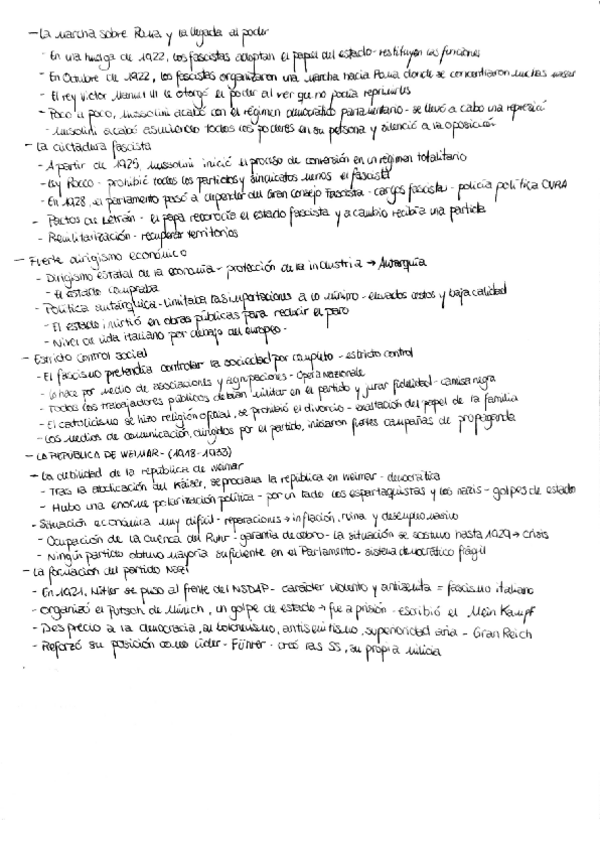 - La marcha sobre Roma y la llegada al poder
- En una huelga de 1922, los fascistas adoptan el papel del estado - restituyen las funciones
- En Octubre de 1922, los fascistas organizaron una marcha hacia Roma donde se concentraron muchas masas
- El rey Victor Manuel III le otorgó el poder al ver que no podía reprimirlos
- Poco a poco, Mussolini acabó con el régimen democrático parlamentario - se llevó a cabo una represión
- Mussolini acabó asumiendo todos los poderes en su persona y silenció a la oposición
- La dictadura fascista
- A partir de 1925, Mussolini inició el proceso de conversión en un régimen totalitario
- Ley Rocco - prohibió todos los partidos y sindicatos menos el fascista
- En 1928, el parlamento pasó a depender del Gran Consejo Fascista - cargos fascistas - policía política OVRA
- Pactos de Letrán - el papa reconocía el estado fascista y a cambio recibía una partida
- Remilitarización - recuperar territorios
- Fuerte dirigismo económico
- Dirigismo estatal de la economía - protección de la industria → Autarquía
- El estado compraba
- Política autárquica - limitaba las importaciones a lo mínimo - elevados costos y baja calidad
- El estado invirtió en obras públicas para reducir el paro
- Nivel de vida italiano por debajo del europeo.
- Estricto control social
- El fascismo pretendía controlar la sociedad por completo - estricto control
- Lo hace por medio de asociaciones y agrupaciones - Opera nazionale
- Todos los trabajadores públicos debían militar en el partido y jurar fidelidad - camisa negra
- El catolicismo se hizo religión oficial, se prohibió el divorcio - exaltación del papel de la familia
- Los medios de comunicación, dirigidos por el partido, iniciaron fuertes campañas de propaganda
- LA REPÚBLICA DE WEIMAR - (1918-1933)
- La debilidad de la república de Weimar
- Tras la abdicación del Káiser, se proclama la república en Weimar - democrática
- Hubo una enorme polarización política - por un lado los espartaquistas y los nazis - golpes de estado
- Situación económica muy difícil - reparaciones → inflación, ruina y desempleo masivo
- Ocupación de la cuenca del Ruhr - garantía de cobro - La situación se sostuvo hasta 1929 → crisis
- Ningún partido obtuvo mayoría suficiente en el Parlamento - sistema democrático frágil
- La formación del partido Nazi
- En 1921, Hitler se puso al frente del NSDAP - carácter violento y antisemita = fascismo italiano
- organizó el Putsch de Múnich, un golpe de estado → fue a prisión - Escribió el Mein Kampf
- Desprecio a la democracia, al bolchevismo, antisemitismo, superioridad aria - Gran Reich
- Reforzó su posición como líder - Führer - creó las SS, su propia milicia